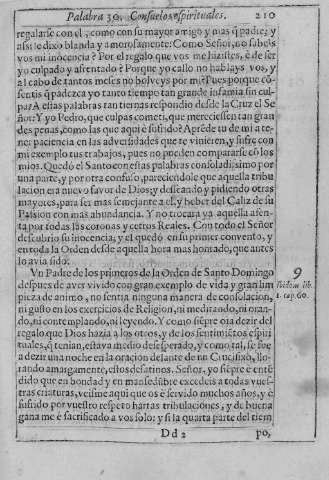 Palabra 30. Consuelos espirituales. 210
regalarse con el, como con su mayor amigo y mas q̃ padre; y
assi le dixo blanda y amorosamente: Como Señor, no sabeis
vos mi inocencia? Por el regalo que vos me hizistes, è de ser
yo culpado y afrentado? Porque yo callo no hablays vos, y
al cabo de tantos meses no bolveys por mi? Pues porque cõ-
sentis q̃ padezca yo tanto tiempo tan grande infamia sin cul-
pa? A estas palabras tan tiernas respondio desde la Cruz el Se
ñor: Y yo Pedro, que culpas cometi, que mereciessen tan gran
des penas, como las que aqui è sufrido? Aprẽde tu de mi a te-
ner paciencia en las adversidades que te vinieren, y sufre con
mi exemplo tus trabajos, pues no pueden compararse cõ los
mios. Quedó el Santo con estas palabras consolado, y si por
una parte, y por otra confuso, pareciendole que aquella tribu
lacion era nuevo favor de Dios; y deseando y pidiendo otras
mayores, para ser mas semejante a el, y beber del Caliz de su
Passion con mas abundancia. Y no trocara ya aquella afren-
ta por todas las coronas y cetros Reales. Con todo el Señor
descubrio su inocencia, y el quedó en su primer convento, y
en toda la Orden desde aquella hora mas honrado, que antes
lo avia sido.
Vn Padre de los primeros de la Orden de Santo Domingo 9
despues de aver vivido con gran exemplo de vida y gran lim Ibidem lib.
pieza de animo, no sentia ninguna manera de consolacion, 1. cap. 60.
ni gusto en los exercicios de Religion, ni meditando, ni oran-
do, ni contemplando, ni leyendo. Y como siẽpre oia dezir del
regalo que Dios hazia a los otros, y de los sentimiẽtos espiri
tuales, q̃ tenian, estava medio desesperado, y como tal, se fue
a dezir una noche en la oracion delante de un Crucifixo, llo-
rando amargamente, estos desatinos. Señor, yo siẽpre è entẽ
dido que en bondad y en mansedũbre excedeis a todas vues-
tras criaturas, veisme aqui que os è servido muchos años, y è
sufrido por vuestro respeto hartas tribulaciones, y de buena
gana me è sacrificado a vos solo; y si la quarta parte del tiem
Dd 2 po,